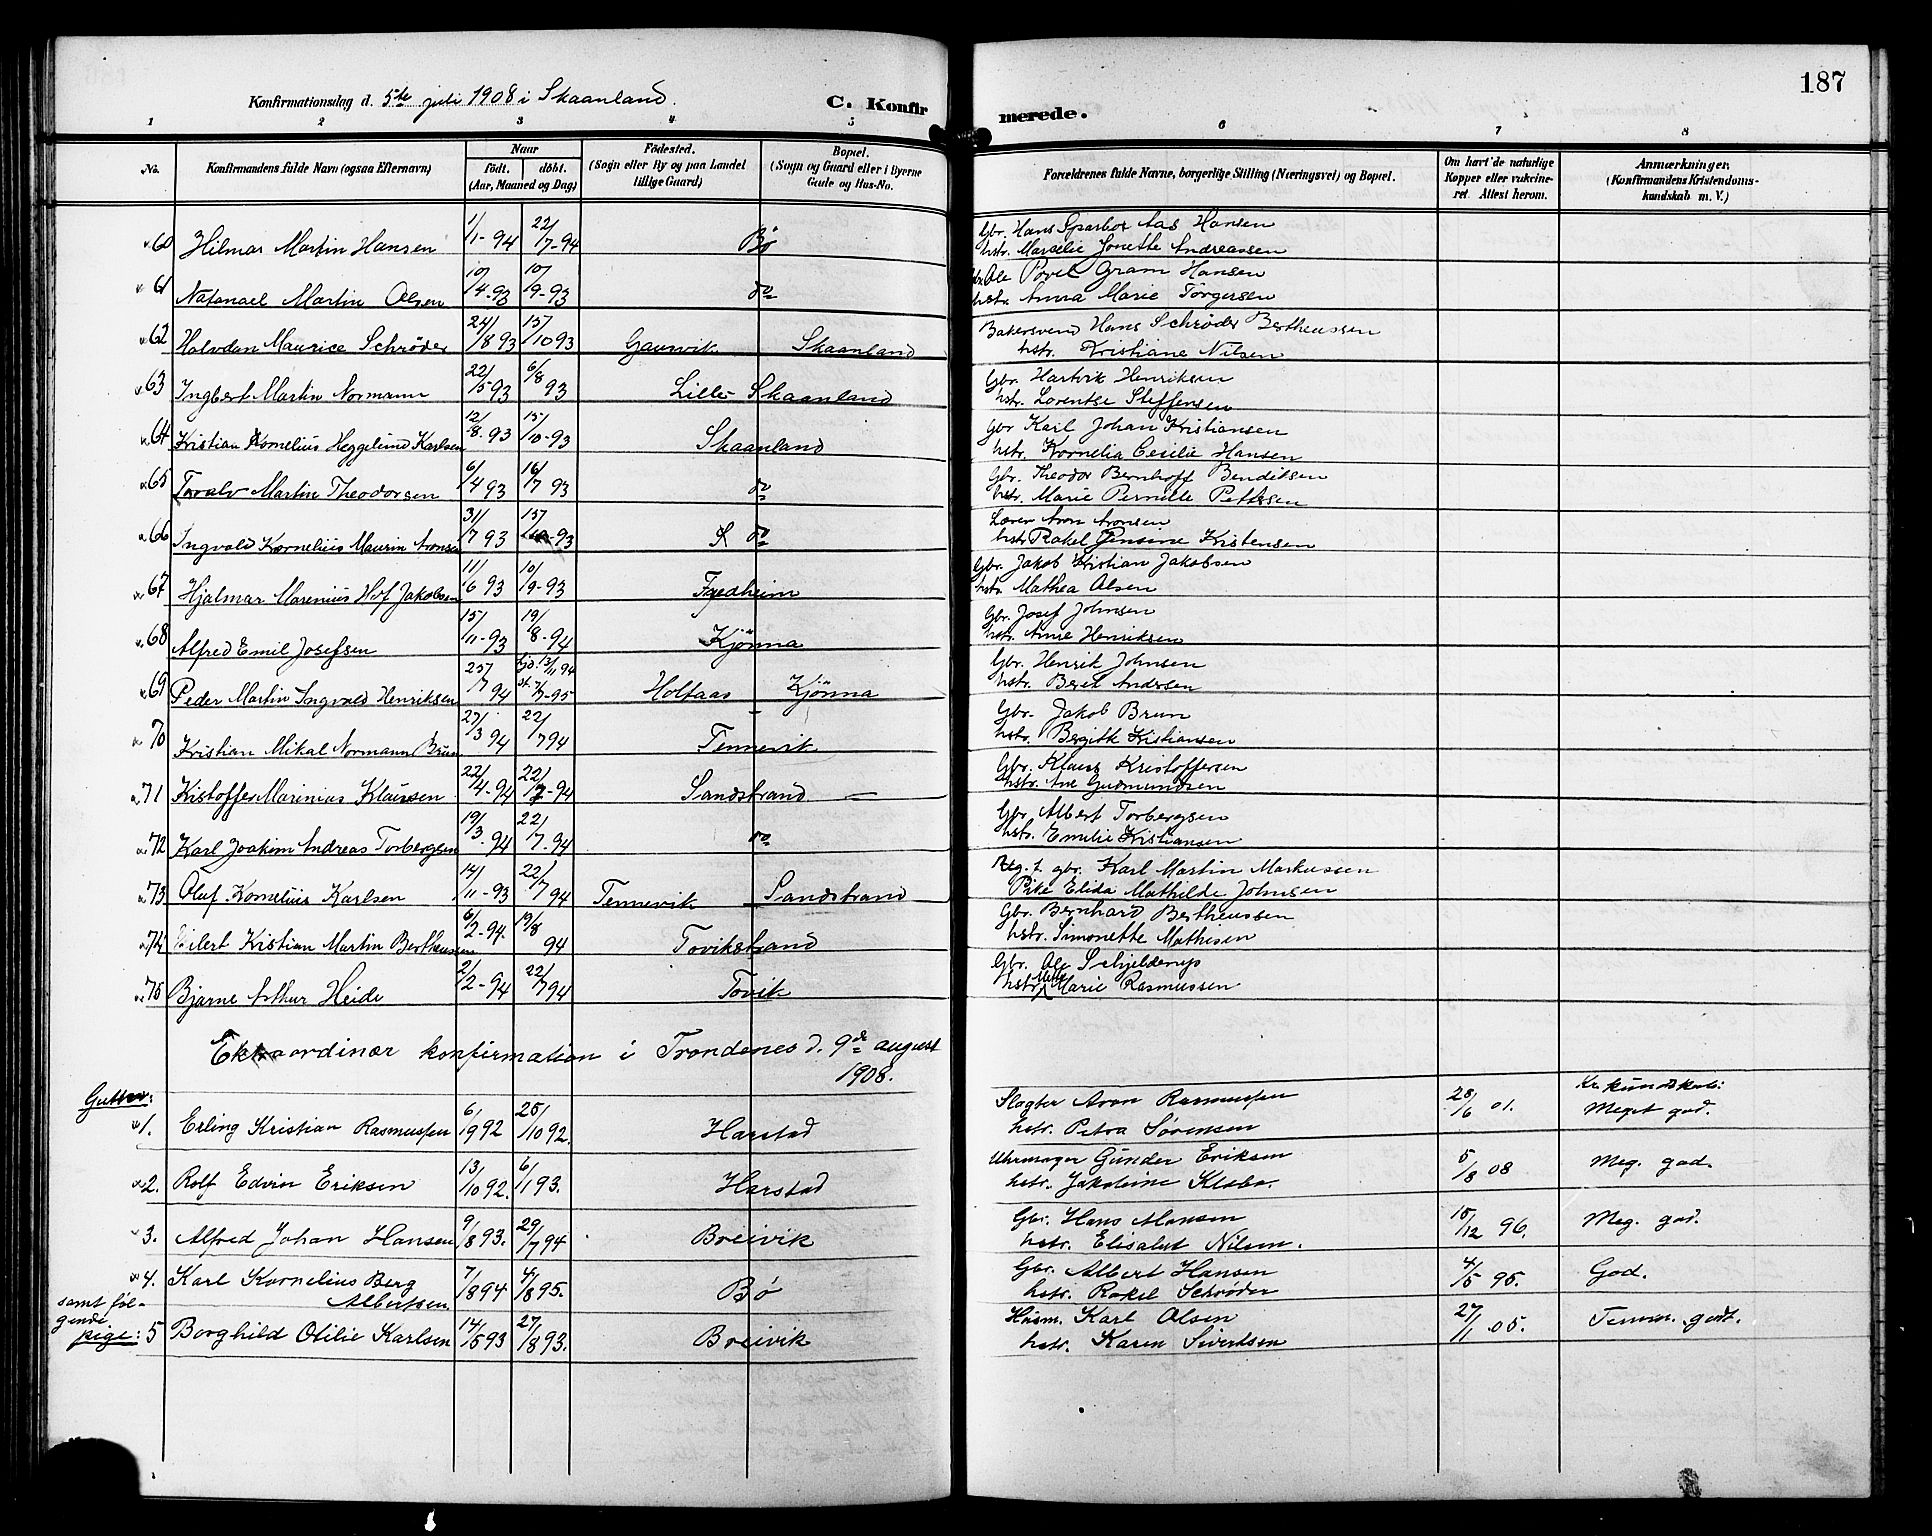 187
Konfirmationsdag d. 5te juli 1908 i Skaanland. C. Konfirmerede.
1 2 3 4 5 6 7 8
No. Konfirmandens fulde Navn (ogsaa Efternavn) Naar født. døbt. (Aar, Maaned og Dag) Fødested. (Sogn eller By og paa Landet tillige Gaard) Bopæl. (Sogn og Gaard eller i Byerne Gade og Hus-No. Forældrenes fulde Navne, borgerlige Stilling (Næringsvei) og Bopæl. Om havt de naturlige Kopper eller vakcineret. Attest herom. Anmærkninger. (Konfirmandens Kristendomskundskab m. V.)
60 Hilmar Martin Hansen 1/11-94 22/7-94 Bø Gbr. Hans Sparbor Aas Hansen
hstr. Marselie Jonette Andreassen
61 Natanael Martin Olsen 10/4-93 10/9-93 do Gbr. Ole Povel Gram Hansen
hstr. Anna Marie Torgersen
62 Halvdan Maurice Schrøder 24/8 93 15/10 93 Gausvik Skaanland Bakersvend Hans Schrøder Bertheussen
hstr. Kristiane Nilsen
63 Ingbert Martin Normann 22/5 93 6/8 93 Lille Skaanland Gbr. Hartvik Henriksen
hstr. Lorentse Steffensen
64 Kristian Kornelius Heggelund Karlsen 12/8-93 15/10-93 Skaanland Gbr Karl Johan Kristiansen
hstr. Kornelia Cecilie Hansen
65 Toralv Martin Theodorsen 6/4 93 16/7 93 do Gbr. Theodor Bernhoff Benditsen
hstr. Marie Pernille Pettersen
66 Ingvald Kornelius Maurin Aronsen 31/7 93 15/10-93 do Lærer Aron Aronsen
hstr Rakel Jensine Kristensen
67 Hjalmar Marenius Hof Jakobsen 11/6 93 10/9-93 Fredheim Gbr. Jakob Kristian Jakobsen
hstr. Mathea Olsen
68 Alfred Emil Josefsen 15/11-93 19/8-94 Kjønna Gbr. Josef Johnsen
hstr. Anne Henriksen
69 Peder Martin Ingvald Henriksen 25/7 94 hjd. 13/11 94 st. 7/7-95 Holtaas Kjønna Gbr. Henrik Johnsen
hstr. Beret Andersen
70 Kristian Mikal Normann Brun 27/3 94 22/7 94 Tennevik Gbr. Jakob Brun
hstr. Bergitte Kristiansen
71 Kristoffer Marinius Klausen 22/4-94 22/7-94 Sandstrand — Gbr. Klaus Kristoffersen
hstr. Ane Gudmundsen
72 Karl Joakim Andreas Torbergsen 19/3-94 22/7-94 do Gbr. Albert Torbergsen
hstr. Emilie Kristiansen
73 Oluf Kornelius Karlsen 14/11-93 22/7 94 Tennevik Sandstrand Ug. f. gbr. Karl Martin Markussen
Pike Elida Mathilde Johnsen
74 Eilert Kristian Martin Bertheussen 6/2-94. 19/8 94 Tovikstrand Gbr. Bernhard Bertheussen
hstr. Simonette Mathisen
75 Bjarne Arthur Heide 2/2-94 22/7 94 Tovik Gbr. Ole Schjelderup
hstr. Marie Rasmussen
Ekstraordinær konfirmation i Trondenes d. 9de august
1908.
Gutter:
1. Erling Kristian Rasmussen 6/9 92 25/10 92. Harstad Slagter Aron Rasmussen
hstr. Petra Sørensen 28/6 01. Kr. kundskab: Meget god.
2. Rolf Edvin Eriksen 13/10 92. 6/1 93. Harstad Uhrmager Gunder Eriksen
hstr. Jakobine Klæbo. 5/8 08 Meg. god.
3. Alfred Johan Hansen 9/8 93. 29/7 94 Breivik Gbr. Hans Hansen
hstr. Elisabet Nilsen. 15/12 96. Meg. god.
4. Karl Kornelius Berg Albertsen 7/8 94 4/8 95. Bø Gbr. Albert Hansen
hstr. Rakel Schrøder 4/5 95. God.
samt følgende pige: 5 Borghild Otilie Karlsen 14/5 93 27/8 93. Breivik Husm. Karl Olsen
hstr. Karen Sivertsen 27/1 05. Temm. godt.